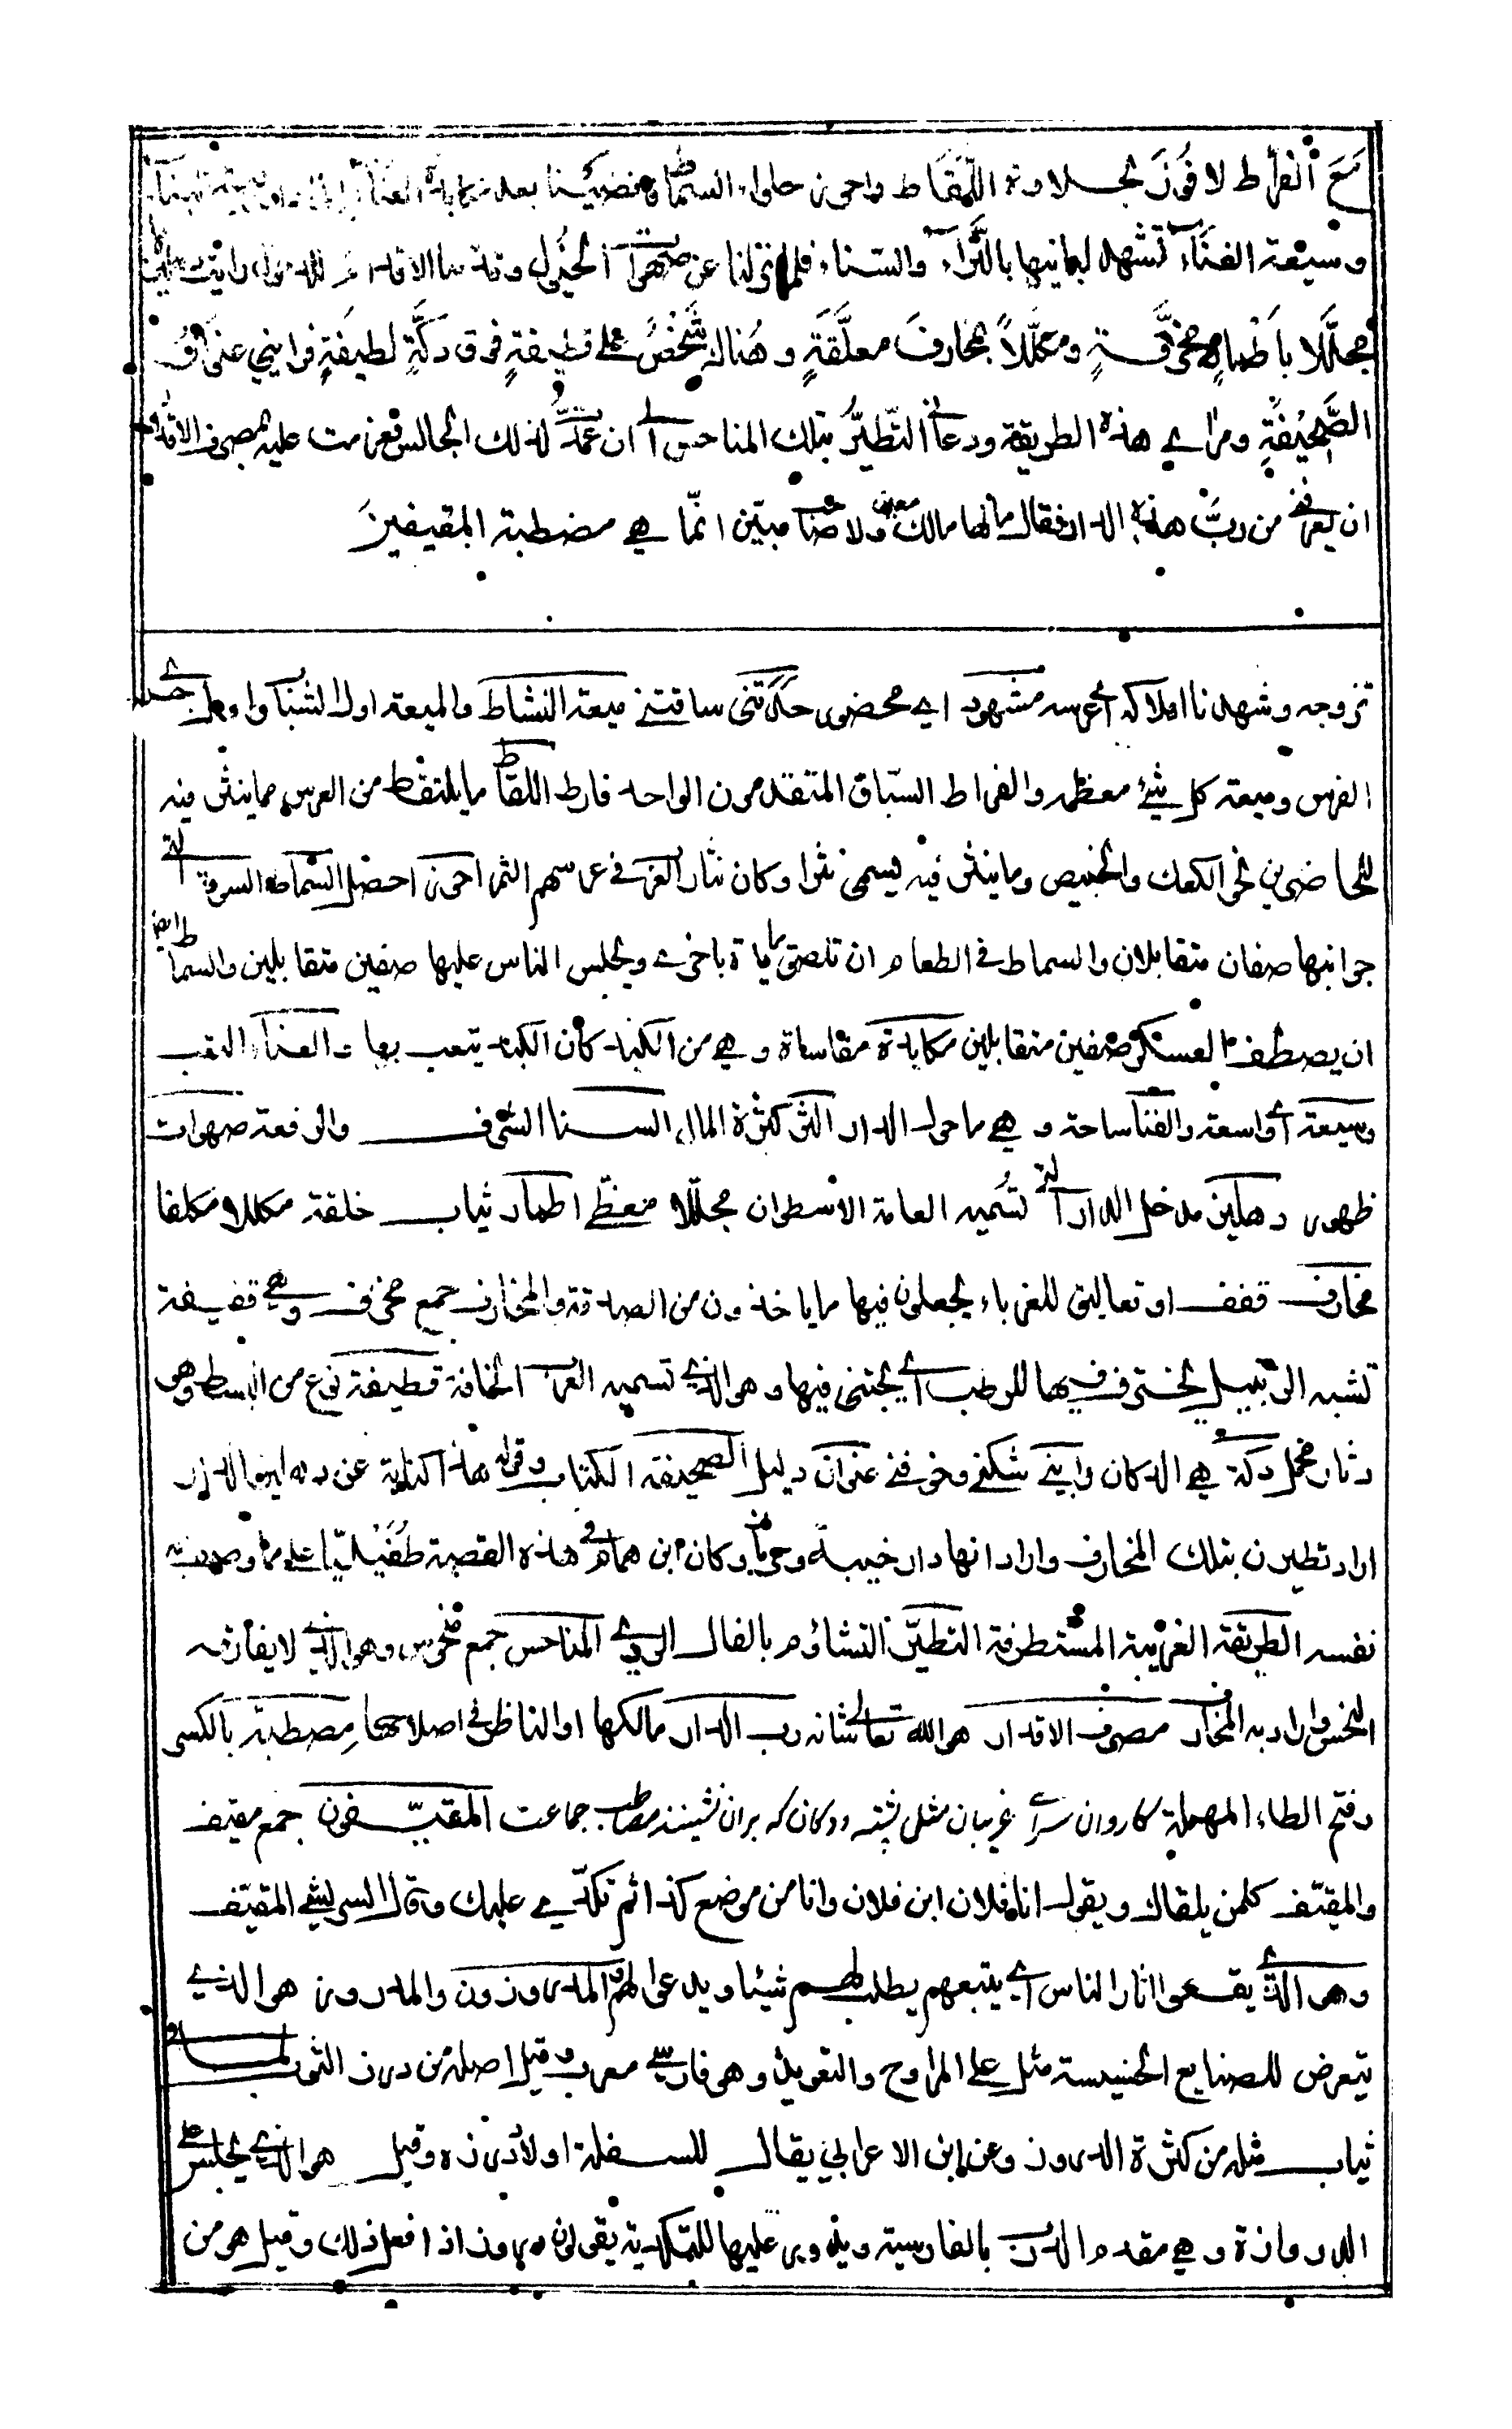 مَعَ الْفُرَّاط لا فُوزَ بحلاوة اللُّقَاط واحوز حلواء السماط فنضينا بعد مكابدة العَنَاء
وسيعة الفنَاءِ تشهد لبانيها بالثّراءِ والسناء فلما نزلنا عن صهوات الخيُول وقدمنا الاقدام للدخول رايت دهليزها
مجلَّلا باَطْمارٍ مخرَّقةٍ ومكلّلاً بمخارفَ معلَّقةٍ وهُناك شَخْصٌ على قطيفةٍ فوق دكَّةٍ لطيفَةٍ فرابني عنوانُ
الصَّحِيْفةِ ومراى هذه الطريقة ودعانى التّطيُّر بتلك المناحس الى ان عمدتُّ لذلك الجالس فعزمت عليه بمصرف الاقدار
ان يعرفنى من ربُّ هذه الدار فقال ما لها مالك معين ولا صاحب مبين انّما هى مصطبة المقيفينَ
تزوجه وشهدنا املاكه اى عرسه مشهود اى محضور حدتنى ساقتنى ميعة النشاط والميعة اول الشباب واول جرى
الفرس وميعة كل شئ معظمه والفراط السبّاق المتقدمون الواحد فارط اللقاط ما يلتقط من العرس مما ينثر فيه
للحاضرين نحو الكعك والخبيص وما ينثر فيه يسمى نثرا وكان نثار العرب فى عرسهم التمر احوز احصل السماط السرة التى
جوانبها صفان متقابلان والسماط فى الطعام ان تلصق مايدة باخرى ويجلس الناس عليها صفين متقابلين والسماط ايضا
ان يصطف العسكر صفين متقابلين مكابدة مقاساة وهى من الكبد كأن الكبد يتعب بها والعناء التعب
وسيعة اى واسعة والفناء ساحة وهى ما حول الدار الثرى كثرة المال السنا الشرف والرفعة صهوات
ظهور دهليز مدخل الدار التى تسميه العامة الاسطوان مجلّلا مغطّى اطمار ثياب خلقة مكللا مكلفا
مخارف قفف او تعاليق للغرباء يجعلون فيها ما ياخذون من الصدقة والمخارف جمع مخرف وهى قفيفة
تشبه الزنبيل يخترف فيها للرطب اى يجتنى فيها وهو الذى تسميه العرب الخافة قطيفة نوع من البسط وهو
دثار مخمل دكة هى الدكان رابنى شككنى وخوفنى عنوان دليل الصحيفة الكتاب وقوله هذا كناية عن دهليز الدار
اراد تطيرت بتلك المخارف واراد انها دار خيبة وحرمان وكان ابن همام فى هذه القصة طُفَيْليّا على ما وصف به
نفسه الطريقة الغريبة المستطرفة التطيّر التشاؤم بالفال الردى المناحس جمع منحوس وهو الذى لا يفارقه
النحس واراد به المخارف مصرف الاقدار هو الله تعالى شانه رب الدار مالكها او الناظر فى اصلاحها مِصطبة بالكسر
وفتح الطاء المهملة كاروان سراى غريبان مثل پشته ودكان كه بران نشينند مصاطب جماعت المقيّفون جمع مقيف
والمقيّف كلمن يلقاك ويقول انا فلان ابن فلان وانا من موضع كذا ثم تكدّى عليك وقال الشريشى المقيّف
وهو الذى يقفوا اثار الناس اى يتبعهم يطلب منهم شيئا ويدعوا لهم المدروزون والمدروز هو الذى
يتعرض للصنايع الخسيسة مثل عمل المراوح والتعويذ وهو فارسى معرب وقيل اصله من درز الثوب
ثياب مثله من كثرة الدروز وعن ابن الاعرابى يقال للسفلة اولاد درزة وقيل هو الذى يجلس على
الدروازة وهى مقدم الدرب بالفارسية ويدور عليها للتكدية يقولون دروز اذا فعل ذلك وقيل هو من